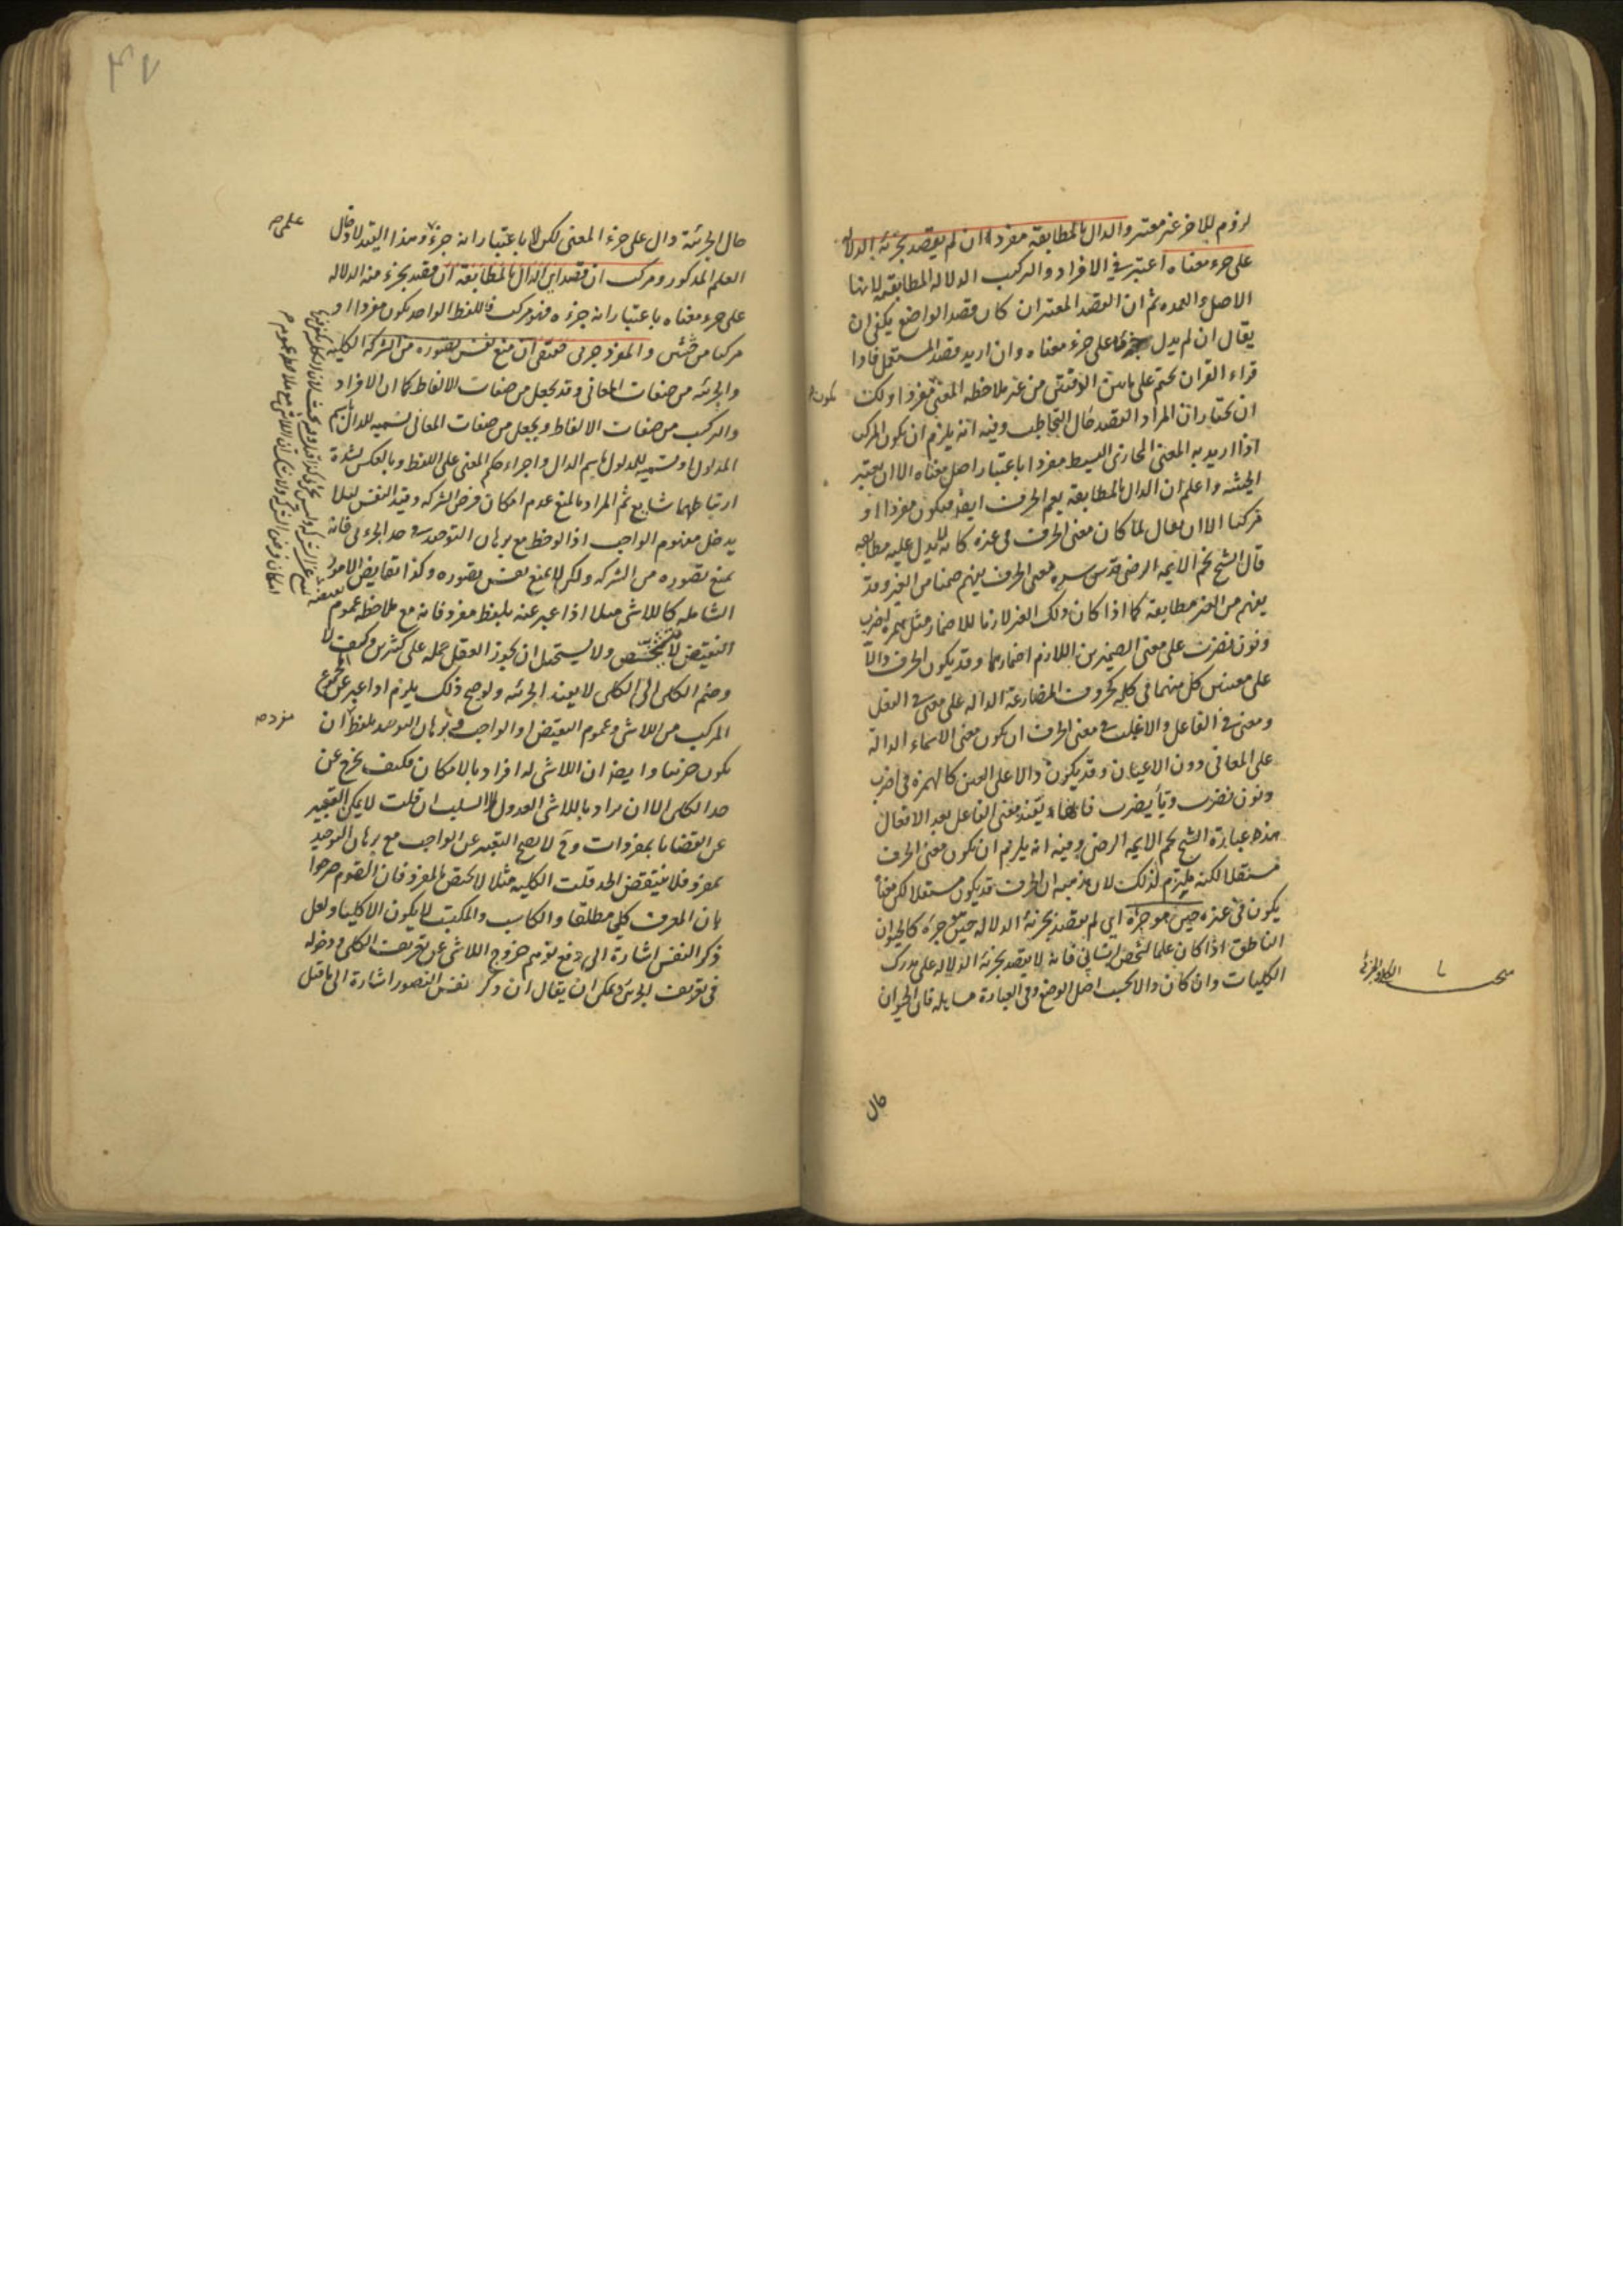 لزوم للاخر غير معتبر والدال بالمطابقة مفرد ان لم يقصد بجزئه الدلالة
على جزء معناه اعتبر في الافراد والتركيب الدلالة المطابقية لانها
الاصل والعمدة ثم ان القصد المعتبر ان كان قصد الواضع يكفى ان
يقال ان لم يدل جزءه على جزء معناه وان اريد قصد المستعمل فاذا
قراء القران من غير ملاحظة المعنى مفردا ولك
ان تختار ان المراد القصد حال التخاطب وفيه انه يلزم ان يكون المركب
اذا اريد به المعنى المجازى البسيط مفردا باعتبار اصل معناه الا ان يعتبر
الحيثية واعلم ان الدال بالمطابقة يعم الحرف ايضا فيكون مفردا او
مركبا الا ان يقال لما كان معنى الحرف في غيره كانه لم يدل عليه مطابقة
قال الشيخ نجم الايمة الرضى قدس سره معنى الحرف يفهم ضمنا من الغير وقد
يفهم من الغير مطابقة كما اذا كان ذلك الغير لازما للاضمار مثل همزة اضرب
ونون نضرب على معنى الضميرين اللازم اضمارهما وقد يكون الحرف دالا
على معنيين كل منهما في كلمة كحروف المضارعة الدالة على معنى في الفعل
ومعنى في الفاعل والاغلب في معنى الحرف ان يكون معنى الاسماء الدالة
على المعانى دون الاعيان وقد يكون دالا على العين كالهمزة في اضرب
ونون نضرب وتا يضرب يفيد معنى الفاعل بعد الافعال
هذه عبارة الشيخ نجم الايمة الرضى وفيه انه يلزم ان يكون معنى الحرف
مستقلا لكنه يلتزم لذلك لان مذهبه ان الحرف قد يكون مستقلا لكن معناه
يكون في غيره حين هو جزءه اى لم يقصد بجزئه الدلالة حين هو جزءه كالحيوان
الناطق اذا كان علما لشخص انسانى فانه لا يقصد بجزئه الدلالة على مدرك
الكليات وان كان دالا بحسب اصل الوضع وفي العبارة مسابلة فان الحيوان
يكون
مبحث الكلى والجزئى
حال
٤٧
حال الجزئية دال على جزء المعنى لكن لا باعتبار انه جزء وهذا القيد لادخال
العلم المذكور ومركب ان قصد اى الدال بالمطابقة ان قصد بجزء منه الدلالة
على جزء معناه باعتبار انه جزءه فهو مركب فاللفظ الواحد يكون مفردا او
مركبا من حيثيتين والمفرد جزئى حقيقى ان منع نفس تصوره من الشركة الكلية
والجزئية من صفات المعانى وقد تجعل من صفات الالفاظ كما ان الافراد
والتركيب من صفات الالفاظ ويجعل من صفات المعانى تسمية للدال باسم
المدلول او تسمية للمدلول باسم الدال واجراء حكم المعنى على اللفظ وبالعكس لشدة
ارتباطهما شايع ثم المراد بالمنع عدم امكان فرض الشركة وقيد النفس لئلا
يدخل مفهوم الواجب اذا لوحظ مع برهان التوحيد في حد الجزئى فانه
يمنع تصوره من الشركة ولكن لا يمنع نفس تصوره وكذا نقايض الامور
الشاملة كاللاشى مثلا اذا عبر عنه بلفظ مفرد فانه مع ملاحظة عموم
النقيض لا يتشخص ولا يستحيل ان يجوز العقل حمله على كثيرين وكيف لا
وضم الكلى الى الكلى لا يفيد الجزئية ولو صح ذلك يلزم اذا عبر عن مجموع
المركب من اللاشى وعموم النقيض او الواجب وبرهان التوحيد بلفظ ان
يكون جزئيا وايضا ان اللاشى له افراد بالامكان فكيف يخرج عن
حد الكلى الا ان يراد باللاشى العدول لا السلب ان قلت لا يمكن التعبير
عن القضايا بمفردات وح لا يصح التعبير عن الواجب مع برهان التوحيد
بمفرد فلا ينتقض الحد قلت الكلية مثلا لا تختص بالمفرد فان القوم صرحوا
بان المعرف كلى مطلقا والكاسب والمكتسب لا يكون الا كليا ولعل
ذكر النفس اشارة الى دفع توهم خروج اللاشى عن تعريف الكلى ودخوله
في تعريف الجزئى ويمكن ان يقال ان ذكر نفس التصور اشارة الى ما قيل
علمى
مفرد